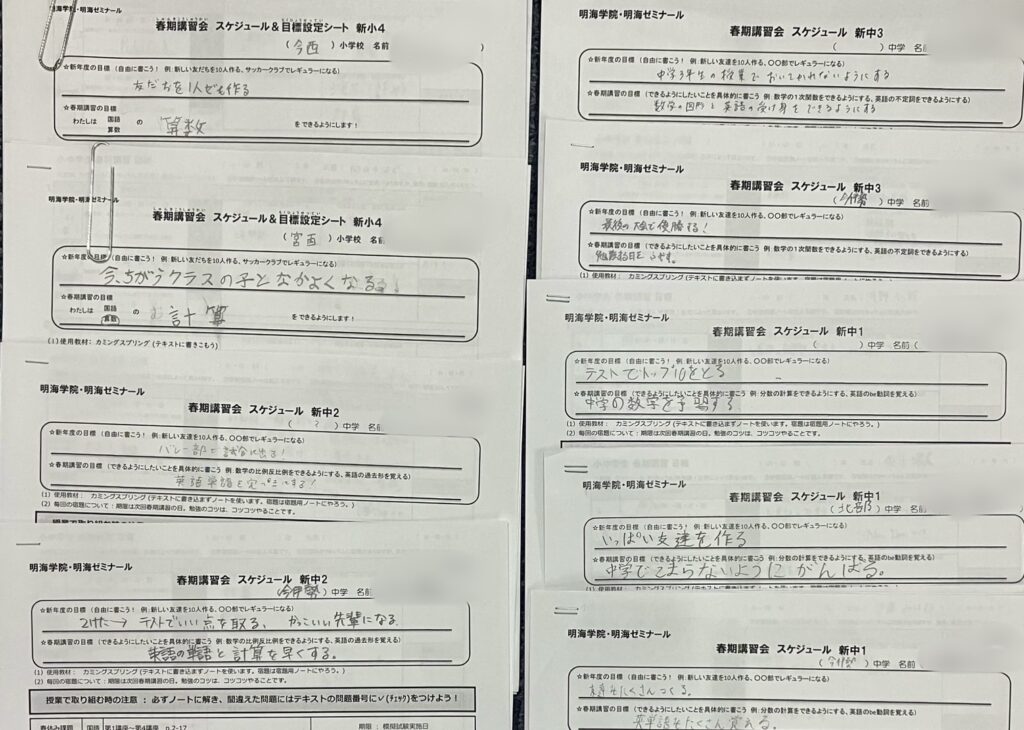 明海学院・明海ゼミナール
春期講習会 スケジュール&目標設定シート 新小4
(今西)小学校 名前 )
☆新年度の目標(自由に書こう! 例:新しい友だちを10人作る、サッカークラブでレギュラーになる)
友だちを1人でも作る
☆春期講習の目標
わたしは 国語 算数 の 算数 をできるようにします!
明海学院・明海ゼミナール
春期講習会 スケジュール&目標設定シート 新小4
(宮西)小学校 名前
☆新年度の目標(自由に書こう! 例:新しい友だちを10人作る、サッカークラブでレギュラーになる)
今、ちがうクラスの子となかよくなる
☆春期講習の目標
わたしは 国語 算数 の 計算 をできるようにします!
(1)使用教材:カミングスプリング(テキストに書きこもう)
明海学院・明海ゼミナール
春期講習会 スケジュール 新中2
( )中学 名前
☆新年度の目標(自由に書こう! 例:新しい友達を10人作る、〇〇部でレギュラーになる)
バレー部で試合に出る!
☆春期講習の目標(できるようにしたいことを具体的に書こう 例:数学の比例反比例をできるようにする、英語の過去形を覚える)
英語単語を
(1)使用教材: カミングスプリング(テキストに書き込まずノートを使います。宿題は宿題用ノートにやろう。)
(2)毎回の宿題について:期限は次回春期講習の日。勉強のコツは、コツコツやることです。
明海学院・明海ゼミナール
春期講習会 スケジュール 新中2
(今伊勢)中学 名前
☆新年度の目標(自由に書こう! 例:新しい友達を10人作る、〇〇部でレギュラーになる)
→ テストでいい点を取る、 かっこいい先輩になる
☆春期講習の目標(できるようにしたいことを具体的に書こう 例:数学の比例反比例をできるようにする、英語の過去形を覚える)
英語の単語と計算を早くする。
(1)使用教材: カミングスプリング(テキストに書き込まずノートを使います。宿題は宿題用ノートにやろう。)
(2)毎回の宿題について:期限は次回春期講習の日。勉強のコツは、コツコツやることです。
授業で取り組む時の注意 : 必ずノートに解き、間違えた問題にはテキストの問題番号に✓(チェック)をつけよう!
春休み課題 国語 第1講座~第4講座 p.2-17 期限 : 模擬試験実施日
明海学院・明海ゼミナール
春期講習会 スケジュール 新中3
( )中学 名前
☆新年度の目標(自由に書こう! 例:新しい友達を10人作る、〇〇部でレギュラーになる)
中学3年生の授業でおいてかれないようにする
☆春期講習の目標(できるようにしたいことを具体的に書こう 例:数学の1次関数をできるようにする、英語の不定詞をできるようにする)
数学の図形と英語の受け身をできるようにする
明海学院・明海ゼミナール
春期講習会 スケジュール 新中3
(今伊勢)中学 名前
☆新年度の目標(自由に書こう! 例:新しい友達を10人作る、〇〇部でレギュラーになる)
最後の大会で優勝する!
☆春期講習の目標(できるようにしたいことを具体的に書こう 例:数学の1次関数をできるようにする、英語の不定詞をできるようにする)
(1)使用教材: カミングスプリング(テキストに書き込まずノートを使います。宿題は宿題用ノートにやろう。)
明海学院・明海ゼミナール
春期講習会 スケジュール 新中1
( )中学 名前(
☆新年度の目標(自由に書こう! 例:新しい友達を10人作る、〇〇部でレギュラーになる)
テストでトップ10をとる
☆春期講習の目標(できるようにしたいことを具体的に書こう 例:分数の計算をできるようにする、英語のbe動詞を覚える)
中学の数学を予習する
(1)使用教材: カミングスプリング(テキストに書き込まずノートを使います。宿題は宿題用ノートにやろう。)
(2)毎回の宿題について:期限は次回春期講習の日。勉強のコツは、コツコツやることです。
明海学院・明海ゼミナール
春期講習会 スケジュール 新中1
(北部)中学 名前
☆新年度の目標(自由に書こう! 例:新しい友達を10人作る、〇〇部でレギュラーになる)
いっぱい友達を作る
☆春期講習の目標(できるようにしたいことを具体的に書こう 例:分数の計算をできるようにする、英語のbe動詞を覚える)
中学でこまらないようにがんばる。
明海学院・明海ゼミナール
春期講習会 スケジュール 新中1
(今伊勢)中学 名前
☆新年度の目標(自由に書こう! 例:新しい友達を10人作る、〇〇部でレギュラーになる)
たくさんつくる。
☆春期講習の目標(できるようにしたいことを具体的に書こう 例:分数の計算をできるようにする、英語のbe動詞を覚える)
英単語をたくさん覚える。